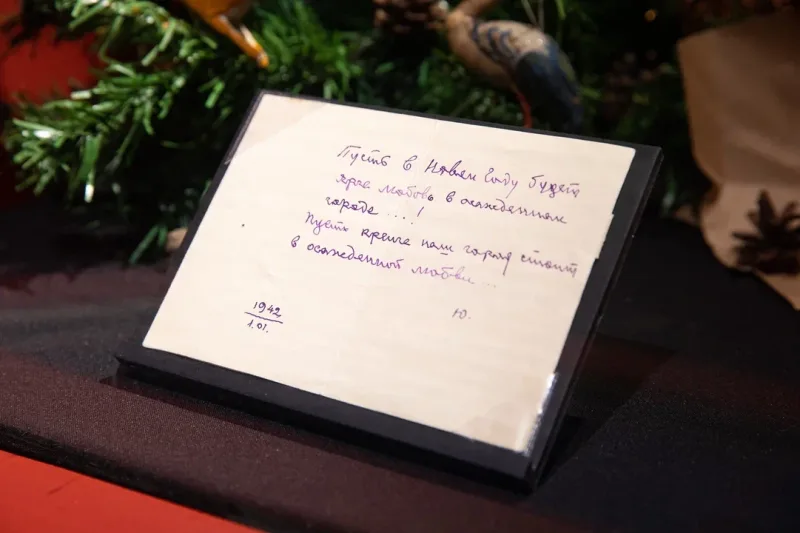 Пусть в Новом Году будет
ярче любовь в осажденном
городе ....!
Пусть крепче наш город стоит
в осажденной любви...
1942
1.01.
Ю.